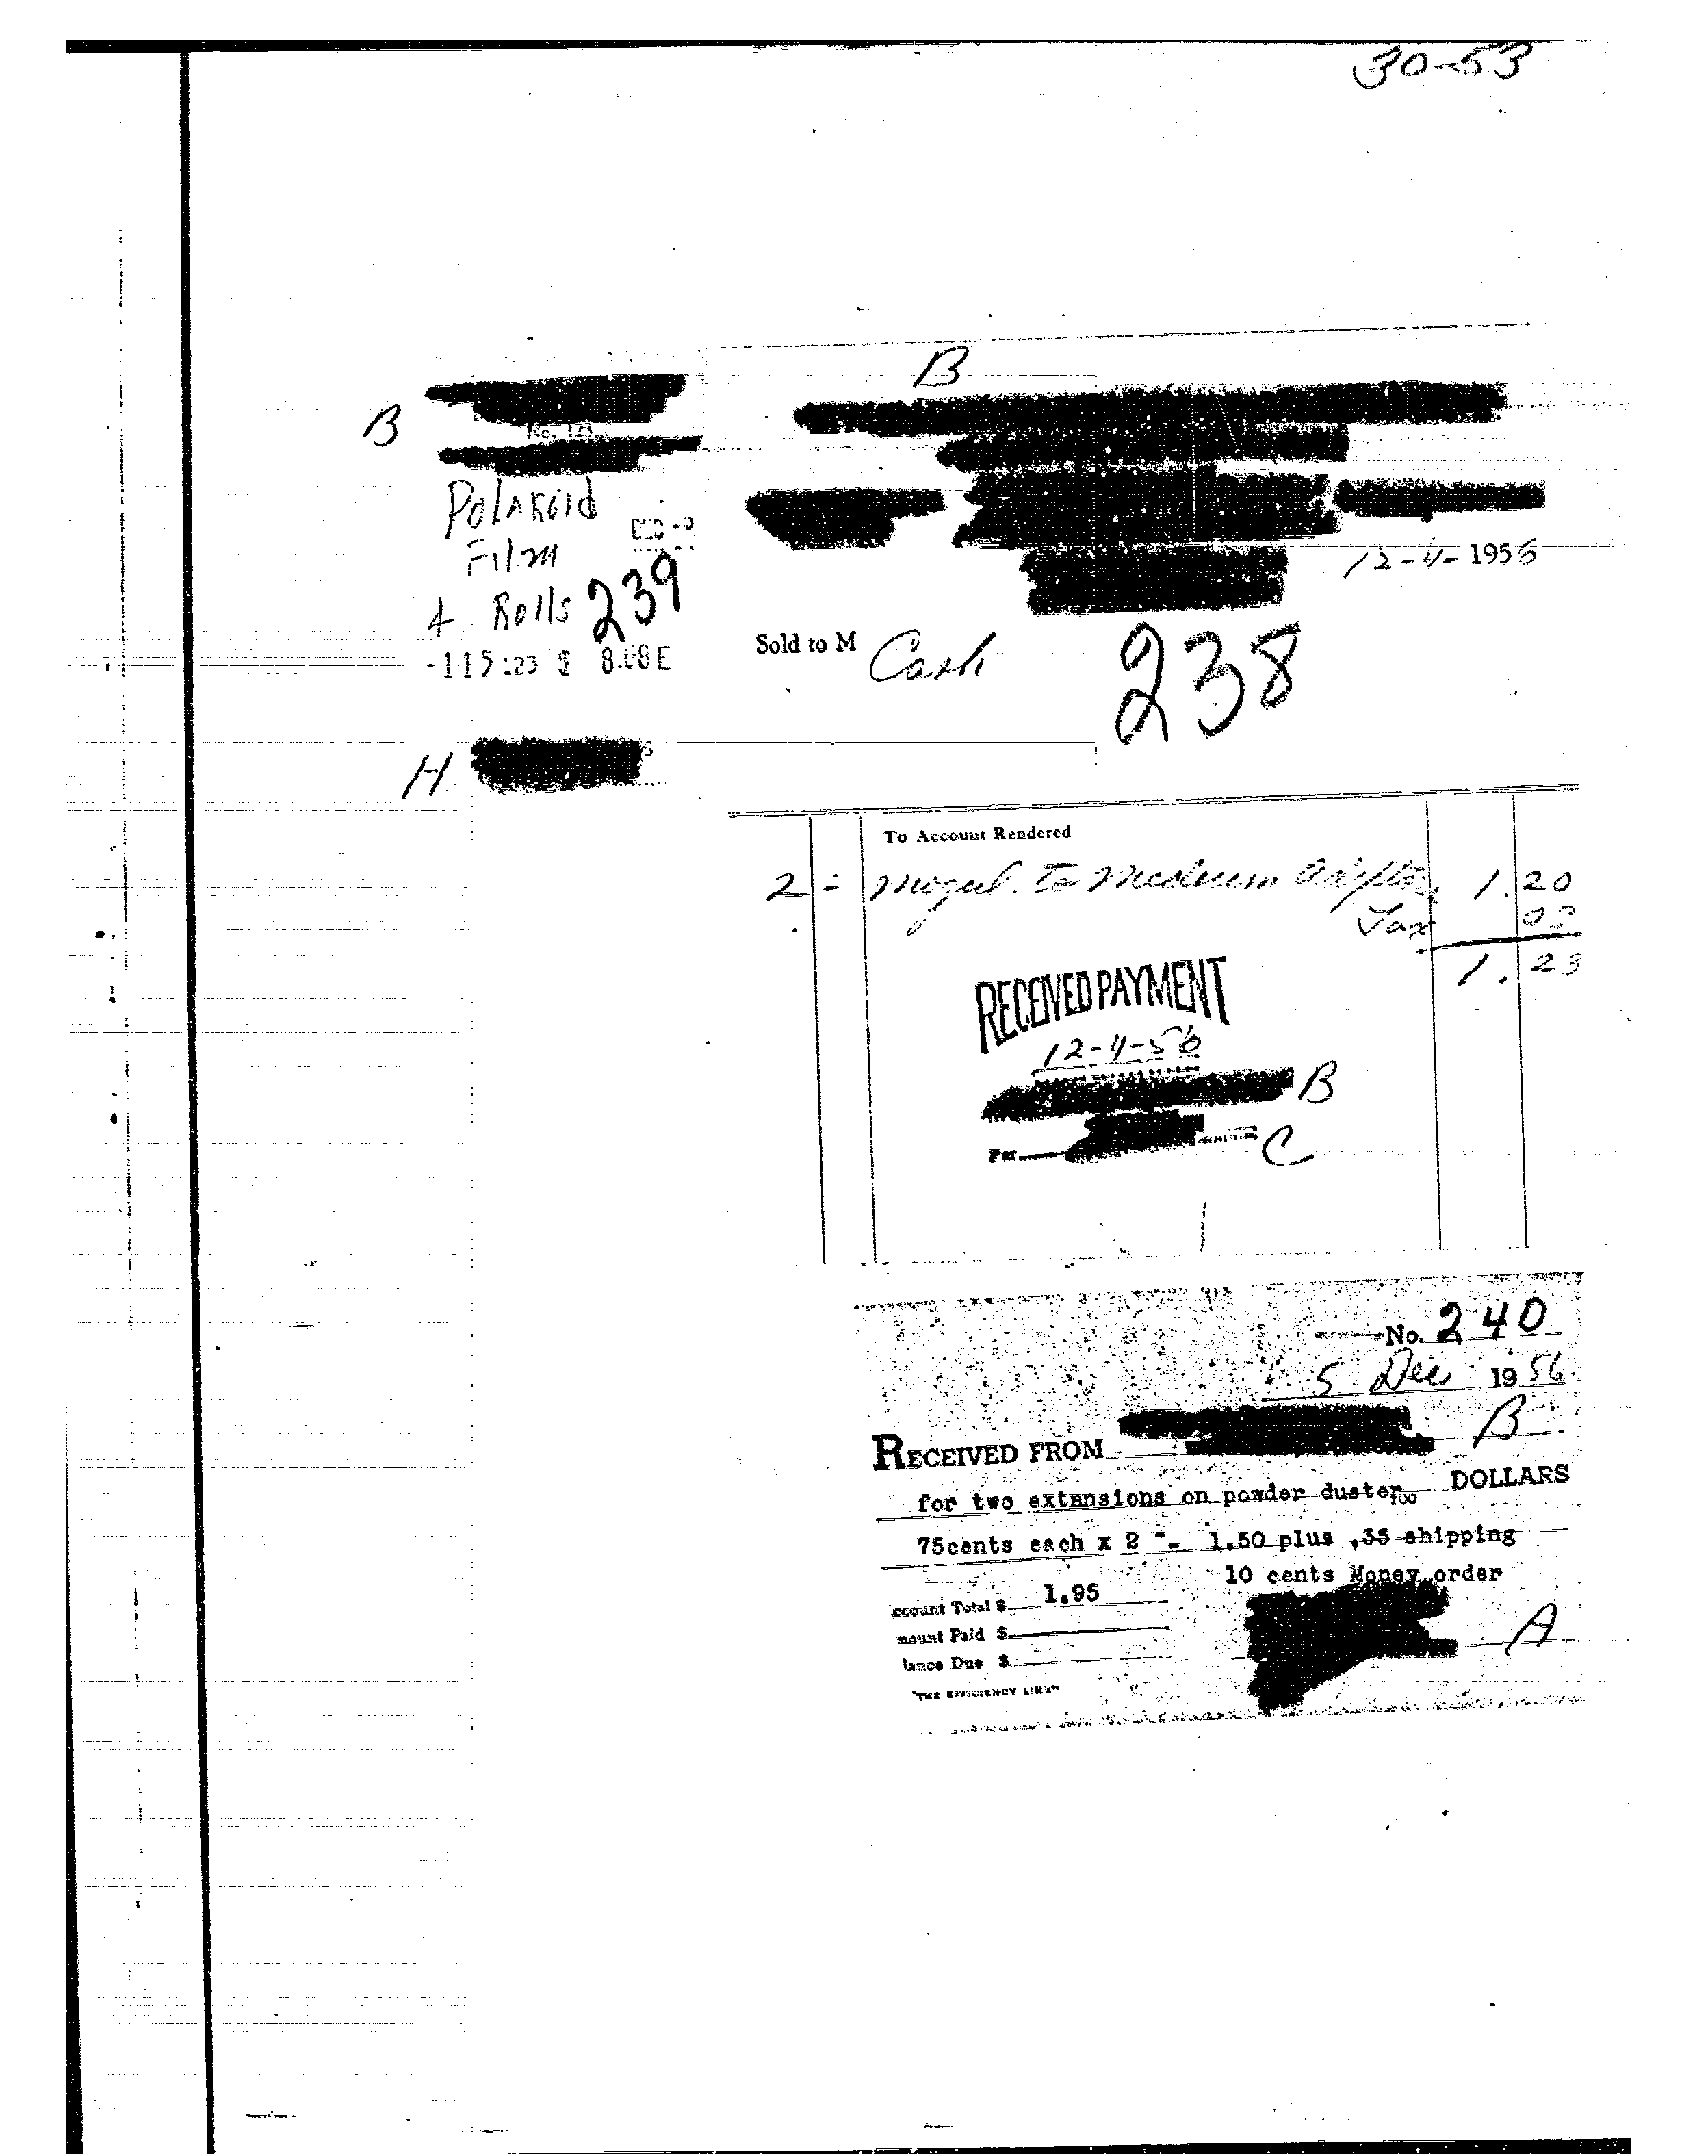 30-53
B
B
No. 123
Polaroid
Film
4 Rolls 239
12-4-1956
Sold to M Cash
238
H
To Account Rendered
2 - mogul to medium
1.20
Tax
1.23
RECEIVED PAYMENT
12-4-56
B
Per
C
No. 240
5 Dec 1956
RECEIVED FROM
B
for two extensions on powder duster
100 DOLLARS
75cents each x 2 - 1.50 plus .35 shipping
10 cents Money order
ccount Total $ 1.95
mount Paid $
A
lance Due $
"THE EFFICIENCY LINE"